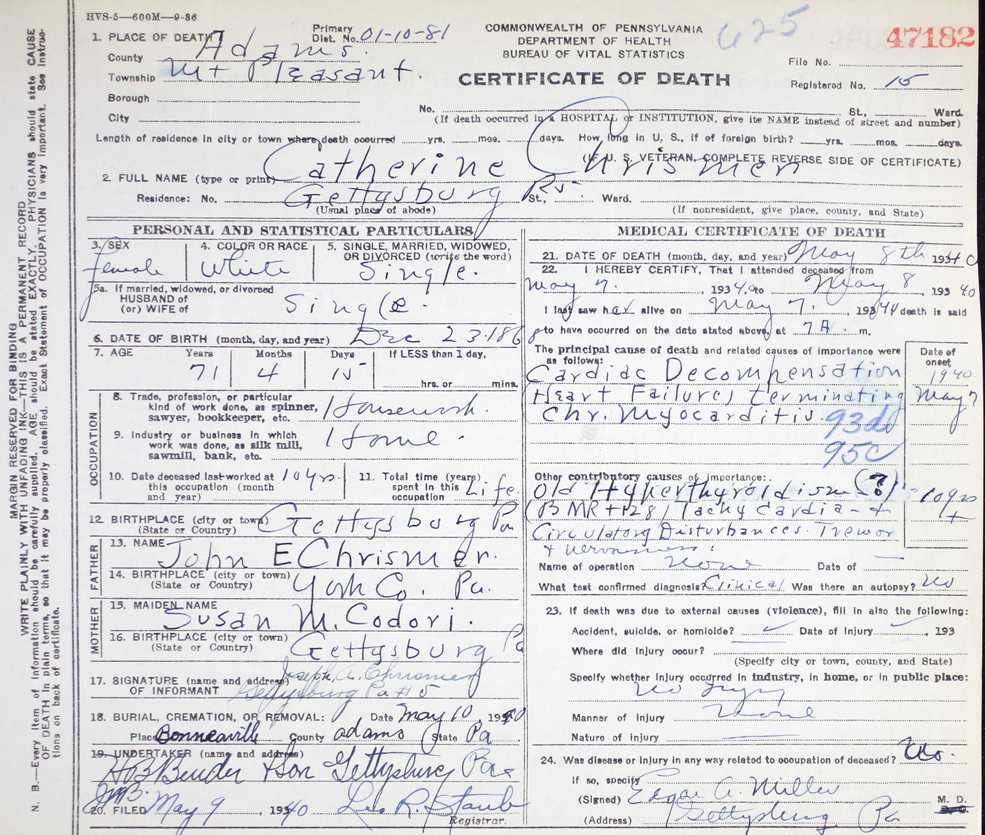 HVS-5—600M—9-36
COMMONWEALTH OF PENNSYLVANIA
DEPARTMENT OF HEALTH
BUREAU OF VITAL STATISTICS
CERTIFICATE OF DEATH
625
47182
File No.
Registered No. 15
1. PLACE OF DEATH
County Adams.
Primary Dist. No. 01-10-81
Township Mt Pleasant.
Borough
City
No. St., Ward.
(If death occurred in a HOSPITAL or INSTITUTION, give its NAME instead of street and number)
Length of residence in city or town where death occurred yrs. mos. days. How long in U. S., if of foreign birth? yrs. mos. days.
(IF U. S. VETERAN, COMPLETE REVERSE SIDE OF CERTIFICATE)
2. FULL NAME (type or print) Catherine Chrismer
Residence: No. Gettysburg R5 St., Ward.
(Usual place of abode) (If nonresident, give place, county, and State)
PERSONAL AND STATISTICAL PARTICULARS
3. SEX
female
4. COLOR OR RACE
White
5. SINGLE, MARRIED, WIDOWED, OR DIVORCED (write the word)
Single.
5a. If married, widowed, or divorced
HUSBAND OF
(or) WIFE of Single.
6. DATE OF BIRTH (month, day, and year) Dec 23-1868
7. AGE Years Months Days If LESS than 1 day,
71 4 15 hrs. or mins.
OCCUPATION
8. Trade, profession, or particular kind of work done, as spinner, sawyer, bookkeeper, etc. Housework.
9. Industry or business in which work was done, as silk mill, sawmill, bank, etc. Home.
10. Date deceased last worked at this occupation (month and year) 10 yrs.
11. Total time (years) spent in this occupation Life
12. BIRTHPLACE (city or town) Gettysburg Pa
(State or Country)
FATHER
13. NAME John E Chrismer.
14. BIRTHPLACE (city or town) York Co. Pa.
(State or Country)
MOTHER
15. MAIDEN NAME Susan M. Codori.
16. BIRTHPLACE (city or town) Gettysburg Pa
(State or Country)
17. SIGNATURE (name and address) OF INFORMANT Joseph A. Chrismer
Gettysburg Pa #5
18. BURIAL, CREMATION, OR REMOVAL: Date May 10 1940
Place Bonneaville County Adams State Pa
19. UNDERTAKER (name and address)
H B Bender & Son Gettysburg Pa
20. FILED May 9 1940 Leo R. Staub
Registrar.
MEDICAL CERTIFICATE OF DEATH
21. DATE OF DEATH (month, day, and year) May 8th 1940
22. I HEREBY CERTIFY, That I attended deceased from
May 7. 1940 to May 8 1940
I last saw her alive on May 7. 1940 death is said
to have occurred on the date stated above, at 7A. m.
The principal cause of death and related causes of importance were as follows:
Date of onset
Cardiac Decompensation 1940
Heart Failure, terminating May 7
Chr. Myocarditis. 93d
95c
Other contributory causes of importance:
Old Hyperthyroidism (?) - 10 yrs +
(BMR +128) Tachycardia - +
Circulatory Disturbances. Tremor
+ nervousness.
Name of operation None Date of
What test confirmed diagnosis? Clinical Was there an autopsy? No
23. If death was due to external causes (violence), fill in also the following:
Accident, suicide, or homicide? Date of injury , 193
Where did injury occur?
(Specify city or town, county, and State)
Specify whether injury occurred in industry, in home, or in public place:
No Injury
Manner of Injury None
Nature of Injury
24. Was disease or injury in any way related to occupation of deceased? No.
If so, specify
(Signed) Edgar A. Miller M. D.
(Address) Gettysburg Pa
MARGIN RESERVED FOR BINDING
WRITE PLAINLY WITH UNFADING INK—THIS IS A PERMANENT RECORD
N. B.—Every item of information should be carefully supplied. AGE should be stated EXACTLY. PHYSICIANS should state CAUSE
OF DEATH in plain terms, so that it may be properly classified. Exact Statement of OCCUPATION is very important. See instruc-
tions on back of certificate.